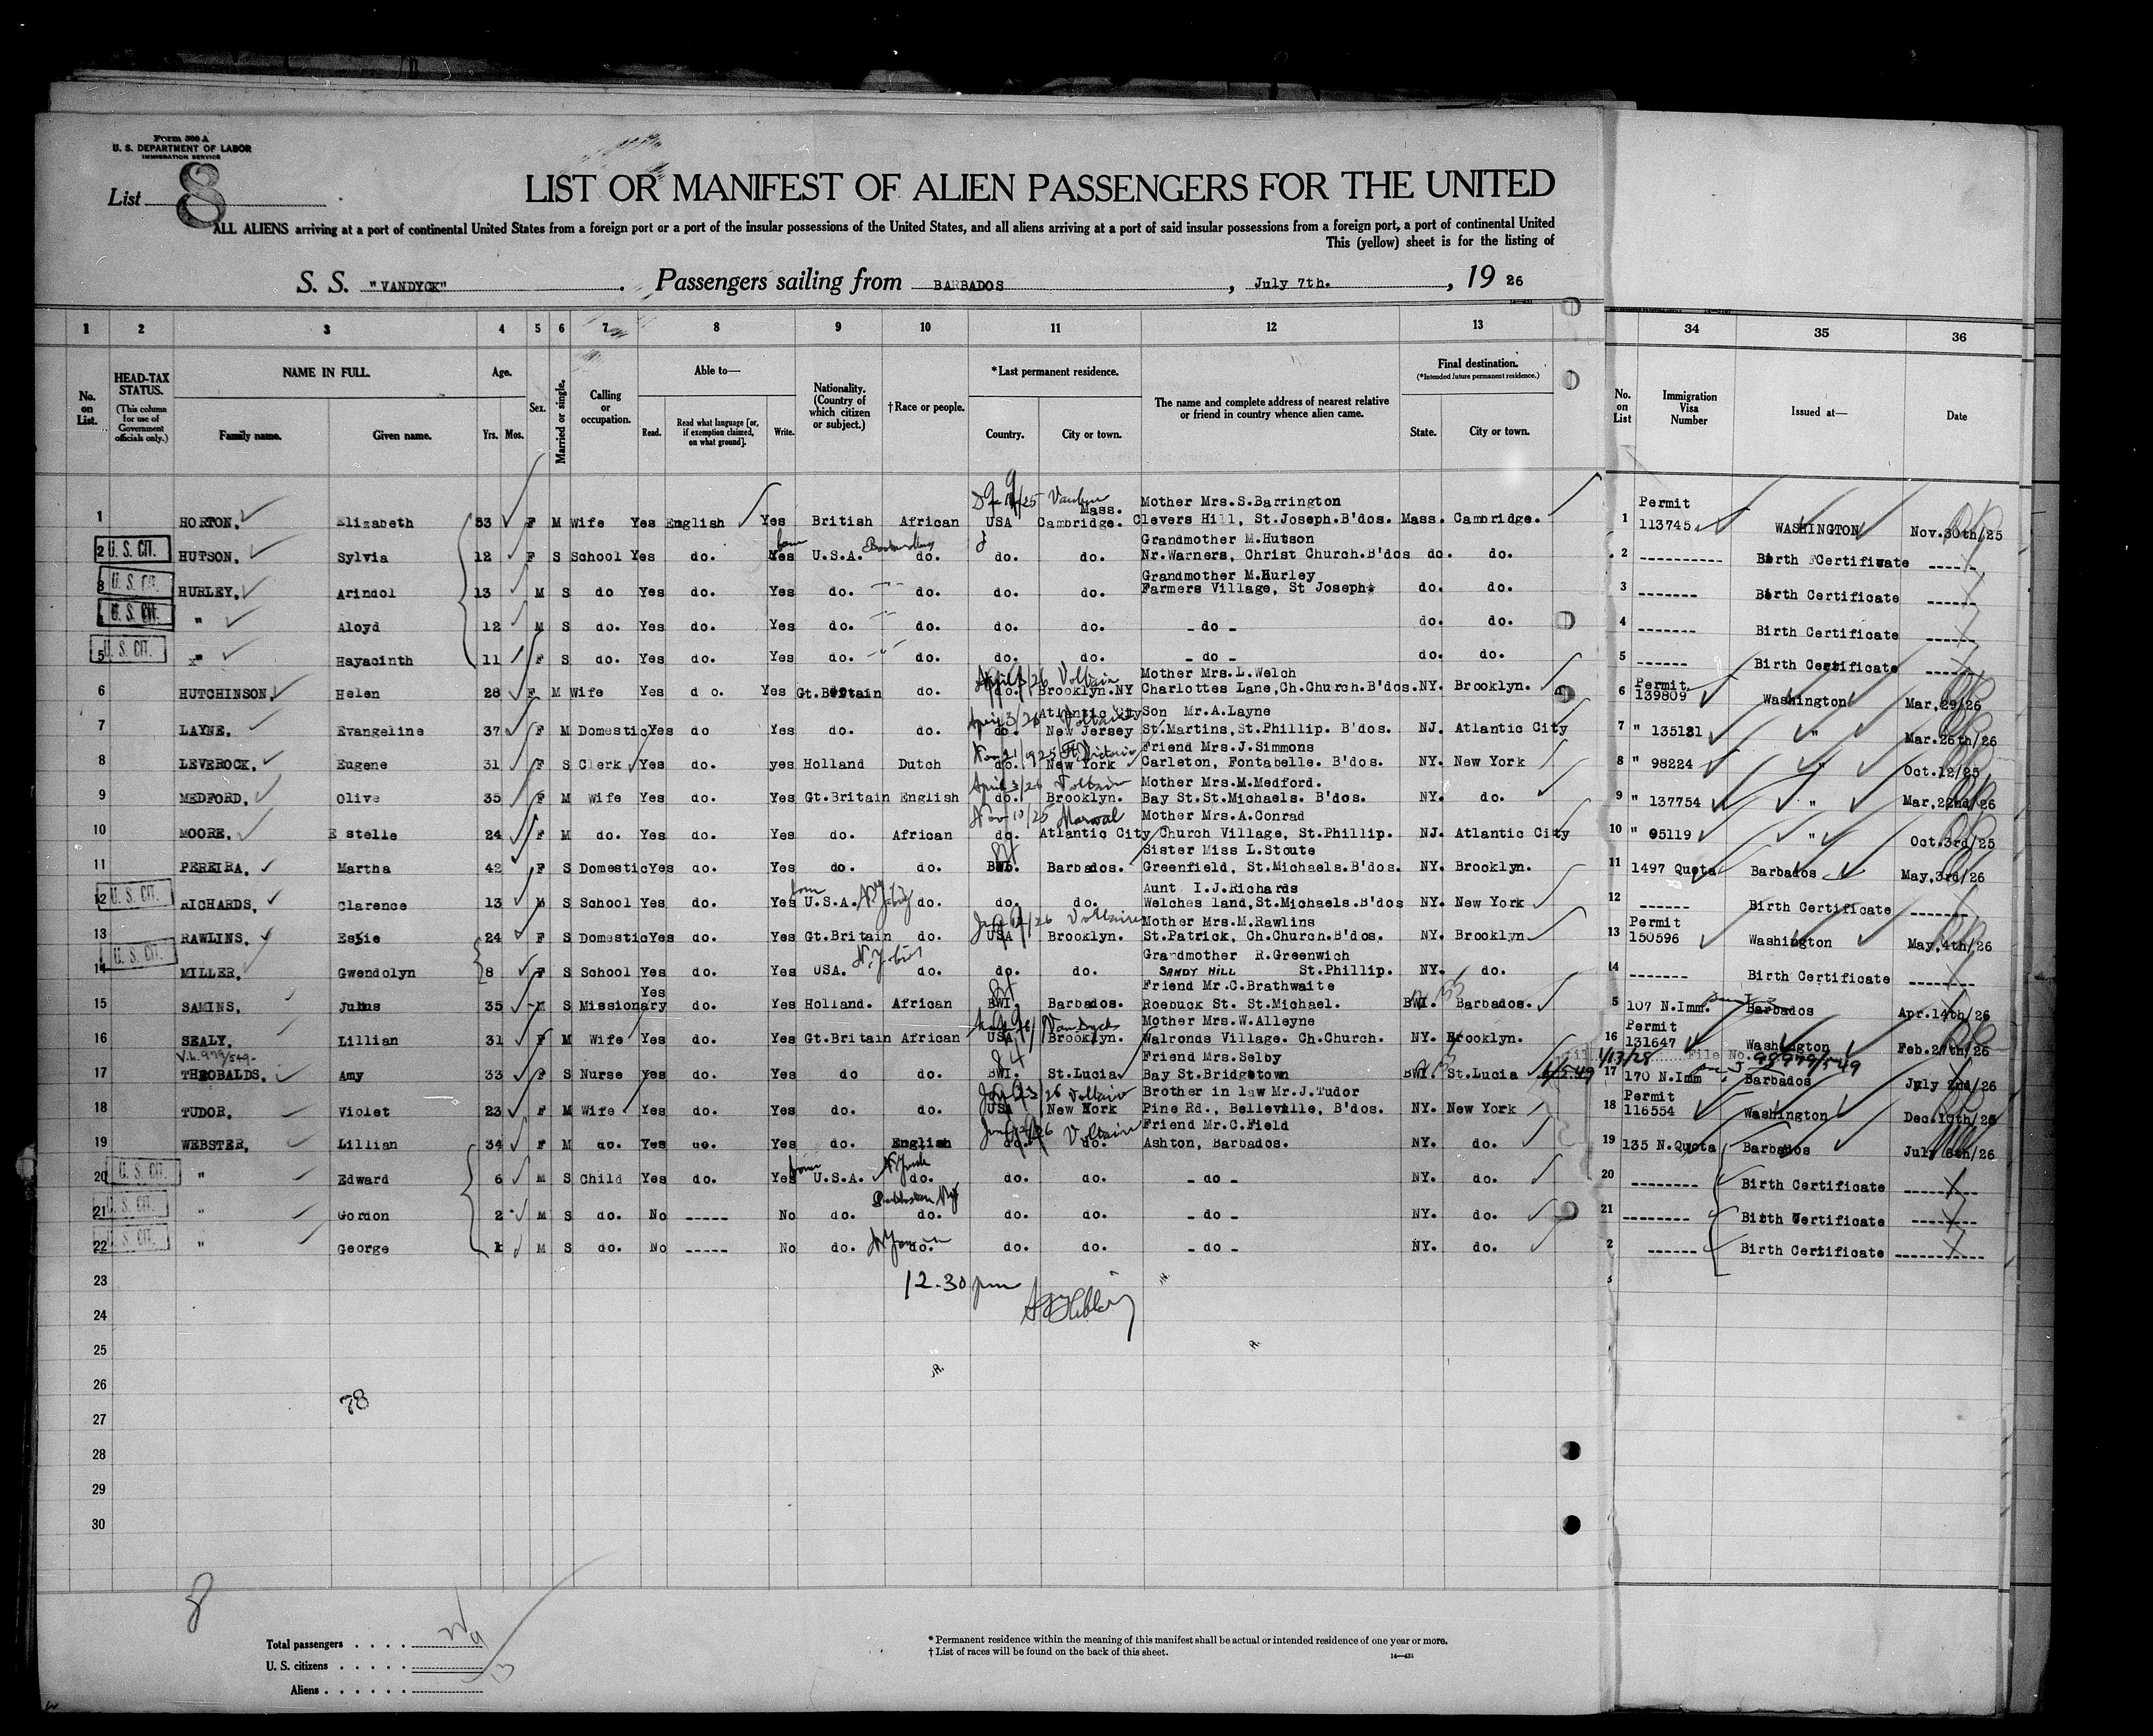 Form 500 A
U. S. DEPARTMENT OF LABOR
IMMIGRATION SERVICE
List 8
LIST OR MANIFEST OF ALIEN PASSENGERS FOR THE UNITED
ALL ALIENS arriving at a port of continental United States from a foreign port or a port of the insular possessions of the United States, and all aliens arriving at a port of said insular possessions from a foreign port, a port of continental United
This (yellow) sheet is for the listing of
S. S. "VANDYCK" . Passengers sailing from BARBADOS , July 7th. , 19 26
1 2 3 4 5 6 7 8 9 10 11 12 13 34 35 36
No. on List.
HEAD-TAX STATUS. (This column for use of Government officials only.)
NAME IN FULL. Family name. Given name.
Age. Yrs. Mos.
Sex.
Married or single.
Calling or occupation.
Able to— Read. Read what language [or, if exemption claimed, on what ground]. Write.
Nationality. (Country of which citizen or subject.)
†Race or people.
*Last permanent residence. Country. City or town.
The name and complete address of nearest relative or friend in country whence alien came.
Final destination. (*Intended future permanent residence.) State. City or town.
No. on List
Immigration Visa Number
Issued at—
Date
Mass. Mother Mrs.S.Barrington Permit
1 HORTON, Elizabeth 53 F M Wife Yes English Yes British African USA Cambridge. Clevers Hill, St.Joseph.B'dos. Mass. Cambridge. 1 113745 WASHINGTON Nov.30th/25
Grandmother M.Hutson
2 U. S. CIT. HUTSON, Sylvia 12 F S School Yes do. Yes U.S.A. do. do. do. Nr.Warners, Christ Church.B'dos do. do. 2 Birth Certificate
Grandmother M.Hurley
3 U. S. CIT. HURLEY, Arindol 13 M S do Yes do. Yes do. do. do. do. Farmers Village, St Joseph. do. do. 3 Birth Certificate
U. S. CIT. " Aloyd 12 M S do. Yes do. Yes do. do. do. do. - do - do. do. 4 Birth Certificate
5 U. S. CIT. " Hayacinth 11 F S do. Yes do. Yes do. do. do. do. - do - do. do. 5 Birth Certificate
April 3/26 Voltaire Mother Mrs.L.Welch Permit
6 HUTCHINSON, Helen 28 F M Wife Yes d o. Yes Gt.Britain do. do. Brooklyn.NY Charlottes Lane,Ch.Church.B'dos. NY. Brooklyn. 6 139809 Washington Mar.29/26
April 3/26 Atlantic City Voltaire Son Mr.A.Layne
7 LAYNE, Evangeline 37 F M Domestic Yes do Yes do. do. do. New Jersey St.Martins,St.Phillip. B'dos. NJ. Atlantic City 7 " 135131 " Mar.26th/26
Nov 21/1925 Friend Mrs.J.Simmons
8 LEVEROCK, Eugene 31 F S Clerk Yes do. yes Holland Dutch do. New York Carleton, Fontabelle. B'dos. NY. New York 8 " 98224 " Oct.12/25
April 3/26 Voltaire Mother Mrs.M.Medford.
9 MEDFORD, Olive 35 F M Wife Yes do. Yes Gt.Britain English do. Brooklyn. Bay St.St.Michaels. B'dos. NY. do. 9 " 137754 " Mar.22nd/26
Nov 10/25 Mother Mrs.A.Conrad
10 MOORE, Estelle 24 F M do. Yes do. Yes do. African do. Atlantic City Church Village, St.Phillip. NJ. Atlantic City 10 " 95119 " Oct.3rd/25
Sister Miss L.Stoute
11 PEREIRA, Martha 42 F S Domestic Yes do. Yes do. do. BWI. Barbados. Greenfield, St.Michaels.B'dos. NY. Brooklyn. 11 1497 Quota Barbados May,3rd/26
Aunt I.J.Richards
12 U. S. CIT. RICHARDS, Clarence 13 M S School Yes do. Yes U.S.A. do. do. do. Welches land,St.Michaels.B'dos NY. New York 12 Birth Certificate
Voltaire Mother Mrs.M.Rawlins Permit
13 RAWLINS, Essie 24 F S Domestic Yes do. Yes Gt.Britain do. USA Brooklyn. St.Patrick, Ch.Church.B'dos. NY. Brooklyn 13 150596 Washington May,4th/26
Grandmother R.Greenwich
14 U. S. CIT. MILLER, Gwendolyn 8 F S School Yes do. Yes USA. do. do. do. SANDY HILL St.Phillip. NY. do. 14 Birth Certificate
Friend Mr.C.Brathwaite
15 SAMINS, Julius 35 M S Missionary Yes do. Yes Holland. African BWI. Barbados. Roebuck St. St.Michael. BWI. Barbados. 5 107 N.Imm. Barbados Apr.14th/26
Mother Mrs.W.Alleyne Permit
16 SEALY, Lillian 31 F M Wife Yes do. Yes Gt.Britain African USA Brooklyn. Walronds Village. Ch.Church. NY. Brooklyn. 16 131647 Washington Feb.27th/26
V.L.979/549 Friend Mrs.Selby 1/13/28 File No. 98979/549
17 THEOBALDS, Amy 33 F S Nurse Yes do. Yes do do. BWI. St.Lucia Bay St.Bridgetown BWI. St.Lucia 17 170 N.Imm Barbados July 2nd/26
Voltaire Brother in law Mr.J.Tudor Permit
18 TUDOR, Violet 23 F M Wife Yes do. Yes do. do. USA New York Pine Rd., Belleville, B'dos. NY. New York 18 116554 Washington Dec.10th/25
Voltaire Friend Mr.C.Field
19 WEBSTER, Lillian 34 F M do. Yes do. Yes do. English do. do. Ashton, Barbados. NY. do. 19 135 N.Quota Barbados July 6th/26
20 U. S. CIT. " Edward 6 M S Child Yes do. Yes U.S.A. do. do. do. - do - NY. do. 20 Birth Certificate
21 U. S. CIT. " Gordon 2 M S do. No ----- No do. do. do. do. - do - NY. do. 21 Birth Certificate
22 U. S. CIT. " George 1 M S do. No ----- No do. do. do. do. - do - NY. do. 2 Birth Certificate
23 12.30 pm
24
25
26
78
27
28
29
30
8
Total passengers . . . .
U. S. citizens . . . . .
Aliens . . . . . .
* Permanent residence within the meaning of this manifest shall be actual or intended residence of one year or more.
† List of races will be found on the back of this sheet.
14—431